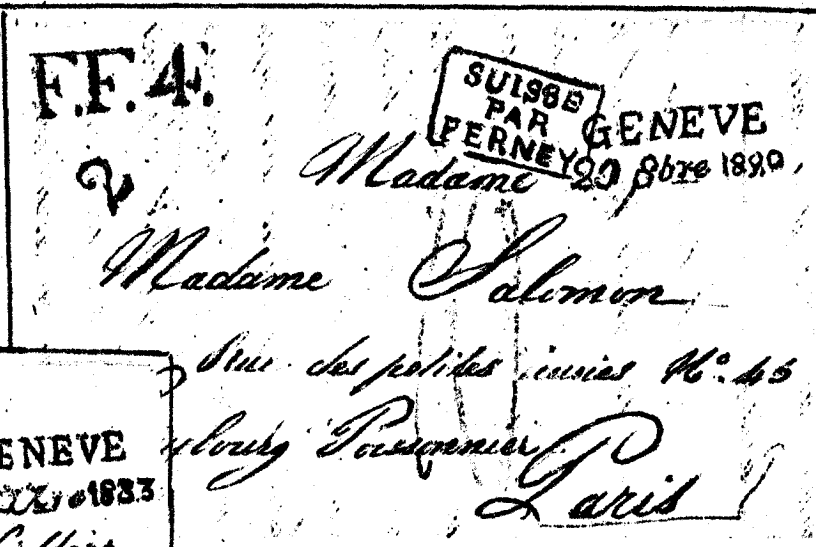 F.F.4.
SUISSE
PAR
FERNEY
GENEVE
20 8bre
2
Madame
Madame Salomon
Rue des petites écuries No. 45
Poissonnier
Paris
ENEVE
1833